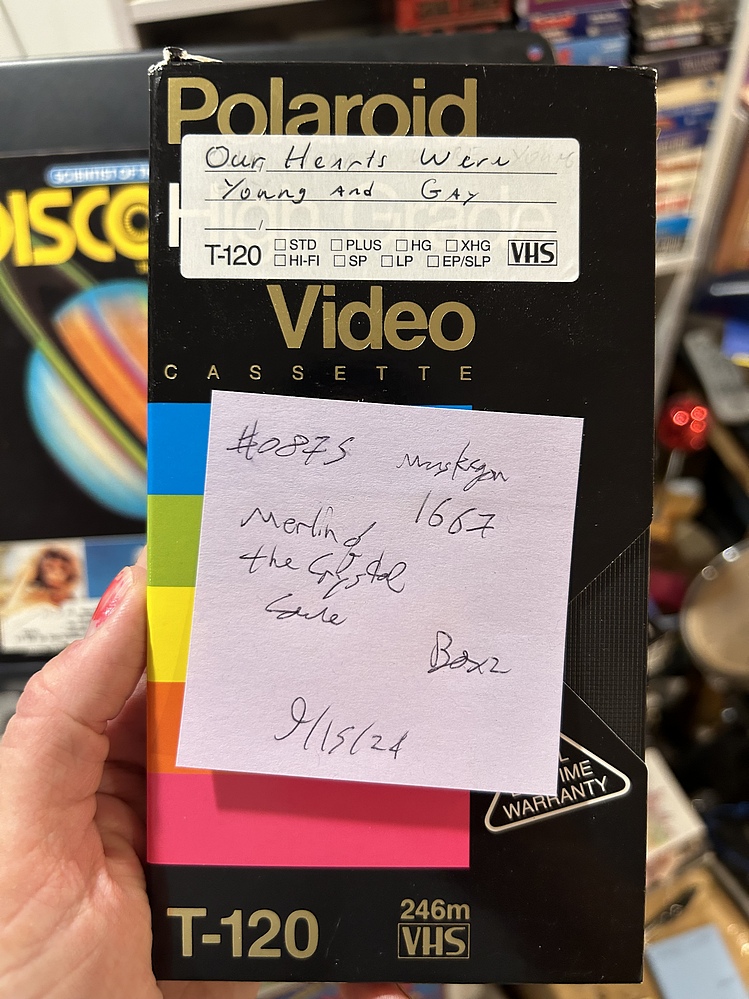 Polaroid
Our Hearts Were
Young and Gay
High Grade
T-120 STD PLUS HG XHG VHS
HI-FI SP LP EP/SLP
DISCO
Video
CASSETTE
#0875 Muskegon
1667
Merlin &
the Crystal
Cave
Box 2
9/15/24
IME
WARRANTY
T-120
246m
VHS